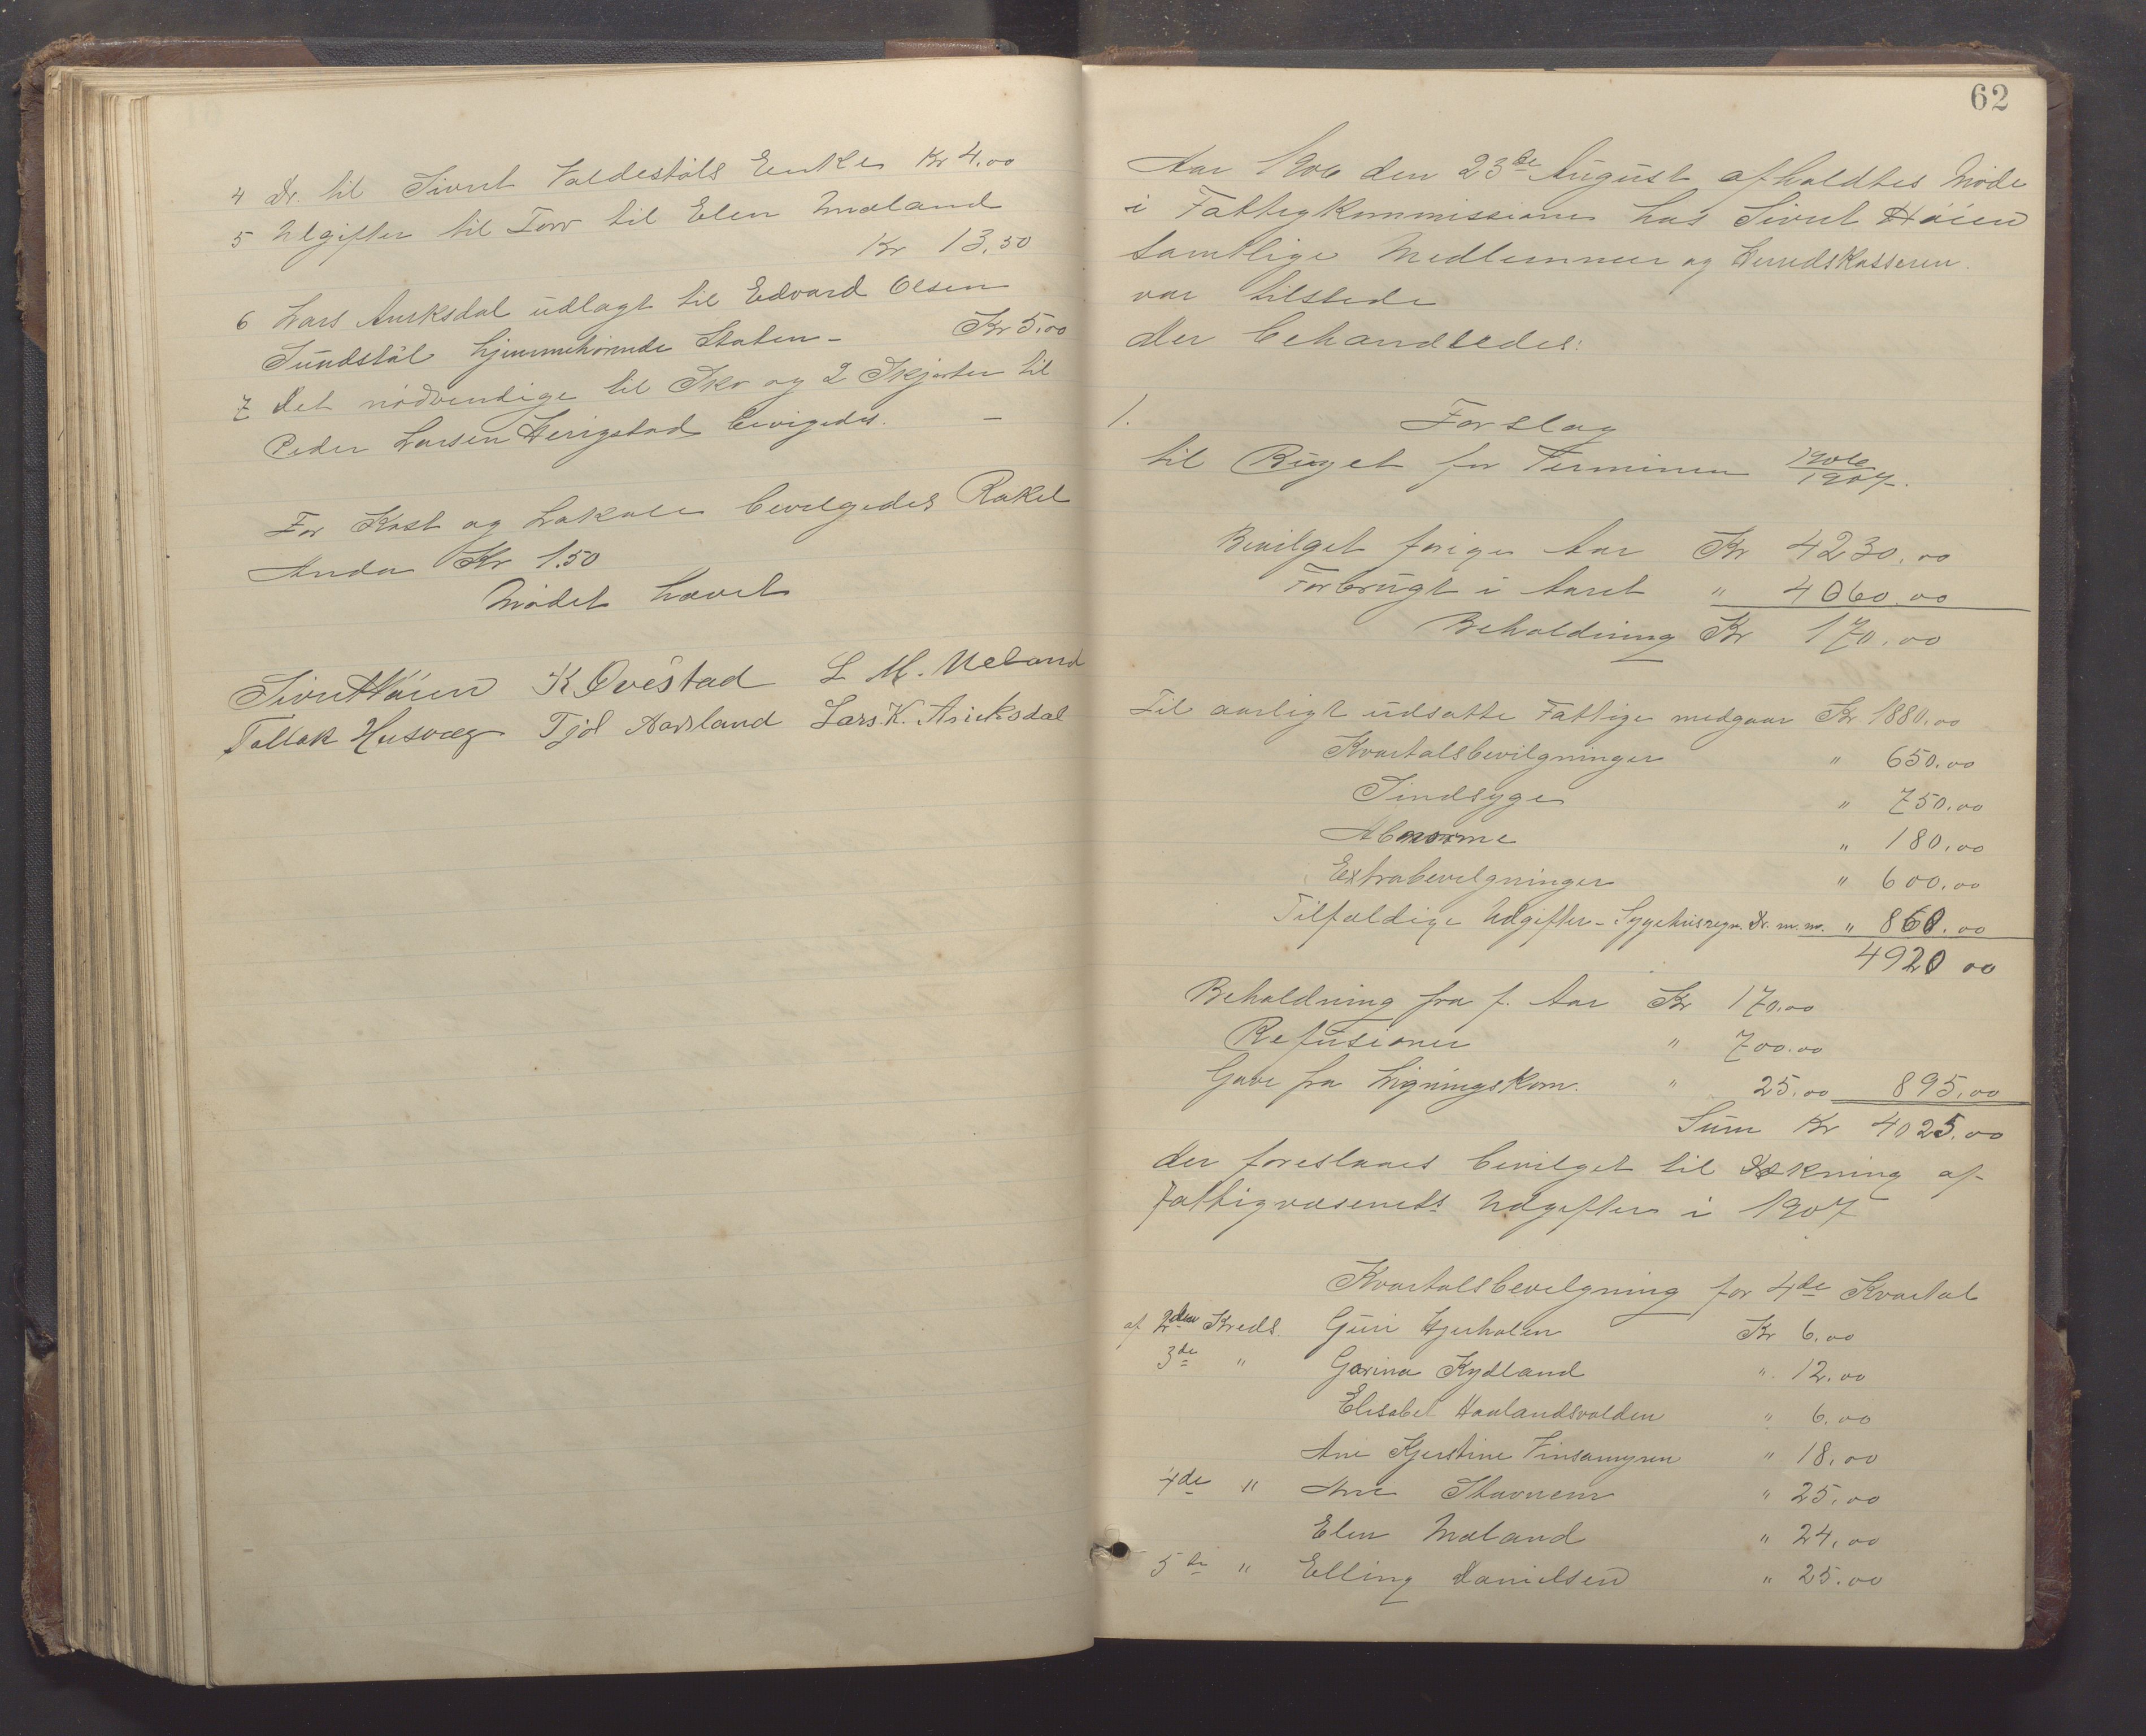 4 Dr. til Sivert Valdestøls Enke Kr 4.00
5 Utgifter til Torv til Elen Mæland
Kr 13.50
6 Lars Aurksdal udlagt til Edvard Olsen
Sundstøl hjemmehørende Staten - Kr 5.00
7 Det nødvendige til Sko og 2 Skjorter til
Peder Larsen Herigstad bevigedes. -
For Kost og Lokale bevilgedes Rakel
Anda Kr 1.50
Mødet hævet
Sivert Høien K Qvestad L M. Ueland
Tallak Husvæg Tjøl Aarsland Lars K. Aurksdal
62
Aar 1906 den 23de August afholdtes Møde
i Fattigkommissionen hos Sivert Høien
samtlige Medlemmer og Herredskasseren
var tilstede
der behandledes:
1. Forslag
til Buget for Terminen 1906/1907.
Bevilget forige Aar Kr 4230.00
Forbrugt i Aaret " 4060.00
Beholdning Kr 170.00
Til aarligt udsatte Fattige medgaar Kr 1880.00
Kvartalsbevilgninger " 650.00
Sindsyge " 750.00
Abnorme " 180.00
Extrabevilgninger " 600.00
Tilfældige Udgifter - Sygehusregn. Dr. m.m. " 860.00
4920 00
Beholdning fra f. Aar Kr 170.00
Refusioner " 700.00
Gave fra Ligningskom. " 25.00 895.00
Sum Kr 4025.00
der foreslaaes bevilget til Dækning af
Fattigvæsenets Udgifter i 1907
Kvartalsbevilgning for 4de Kvartal
af 2den Kreds. Guri Hjerholen Kr 6.00
3de " Garina Kydland " 12.00
Elisabet Haalandsvolden " 6.00
Ane Kjerstine Vinsamyren " 18.00
4de " Ane Stavnem " 25.00
Elen Mæland " 24.00
5te " Elling Danielsen " 25.00